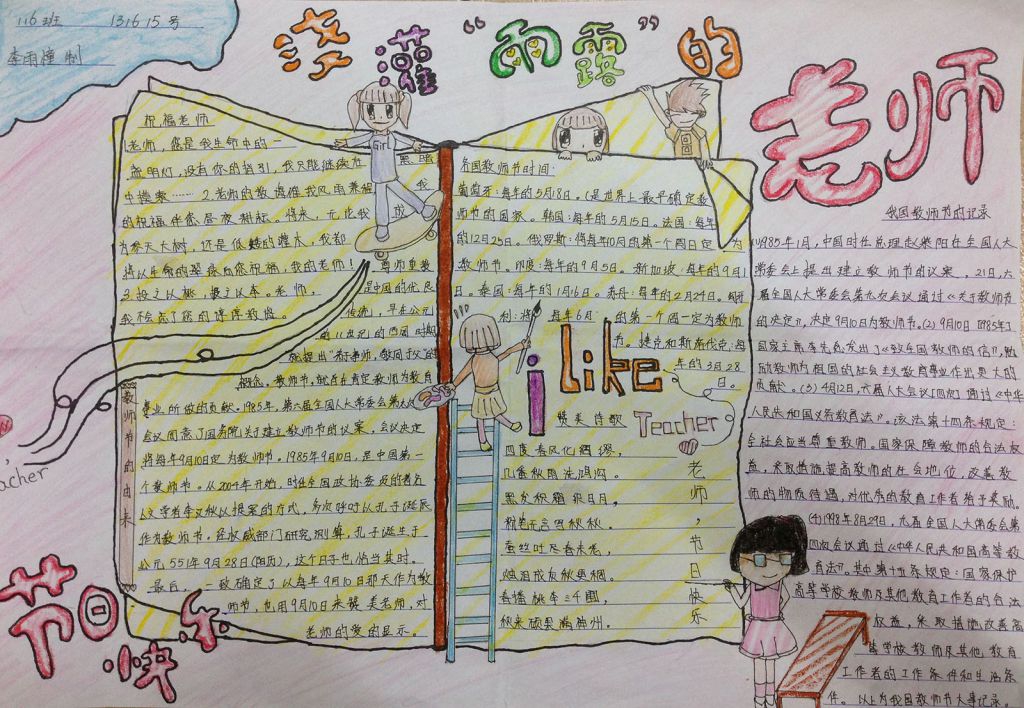 116班 131615号
李雨橦 制
浇灌“雨露”的
老师
祝福老师
1.老师，您是我生命中的一
盏明灯，没有你的指引，我只能继续在黑暗
中摸索……2.老师的教诲伴我风雨兼程，我
的祝福伴您昼夜耕耘。将来，无论我成
为参天大树，还是低矮的灌木，我都
将以生命的翠绿向您祝福，我的老师！
3.投之以桃，报之以李。老师，
我不会忘了您的谆谆教诲。
尊师重教
是中国的优良
传统，早在公元
前11世纪的西周时期
就提出“弟子事师，敬同于父”的
概念。教师节，就旨在肯定教师为教育
事业所做的贡献。1985年，第六届全国人大常委会第九次
会议同意了国务院关于建立教师节的议案，会议决定
将每年9月10日定为教师节。1985年9月10日，是中国第一
个教师节。从2004年开始，时任全国政协委员的著名
人文学者李汉秋以提案的方式，多次呼吁以孔子诞辰
作为教师节。经权威部门研究测算，孔子诞生于
公元551年9月28日(阳历)，这个日子也恰当其时。
最后，一致确定了以每年9月10日那天作为教
师节，也用9月10日来赞美老师，对
老师的爱的显示。
教师节的由来
Teacher
节日快乐
各国教师节时间：
葡萄牙：每年的5月18日。（是世界上最早确定教
师节的国家。韩国：每年的5月15日。法国：每年
的12月25日。俄罗斯：将每年10月的第一个周日定为
教师节。印度：每年的9月5日。新加坡：每年的9月1
日。泰国：每年的1月16日。苏丹：每年的2月24日。匈牙
利：将每年6月的第一个周一定为教师
节。捷克和斯洛伐克：每
年的3月28
日。
i like
Teacher
赞美诗歌
四度春风化绸缪，
几番秋雨洗鸿沟。
黑发积霜织日月，
粉笔无言写秋秋。
蚕丝吐尽春未老，
烛泪成灰秋更稠。
春播桃李三千圃，
秋来硕果满神州。
老师，节日快乐
我国教师节的记录
(1)1985年1月，中国时任总理赵紫阳在全国人大
常委会上提出建立教师节的议案，21日，六
届全国人大常委会第九次会议通过《关于教师节
的决定》，决定9月10日为教师节。(2)9月10日(1985年)
国家主席李先念发出了《致全国教师的信》，勉
励教师为祖国的社会主义教育事业作出更大的
贡献。(3)4月12日，六届人大会议(四次)通过《中华
人民共和国义务教育法》。该法第十四条规定：
全社会应当尊重教师。国家保障教师的合法权
益，采取措施提高教师的社会地位，改善教
师的物质待遇，对优秀的教育工作者给予奖励。
(4)1998年8月29日，九届全国人大常委会第
四次会议通过《中华人民共和国高等教
育法》。其中第十五条规定：国家保护
高等学校教师及其他教育工作者的合法
权益，采取措施改善高
等学校教师及其他教育
工作者的工作条件和生活条
件。以上为我国教师节大事记录。